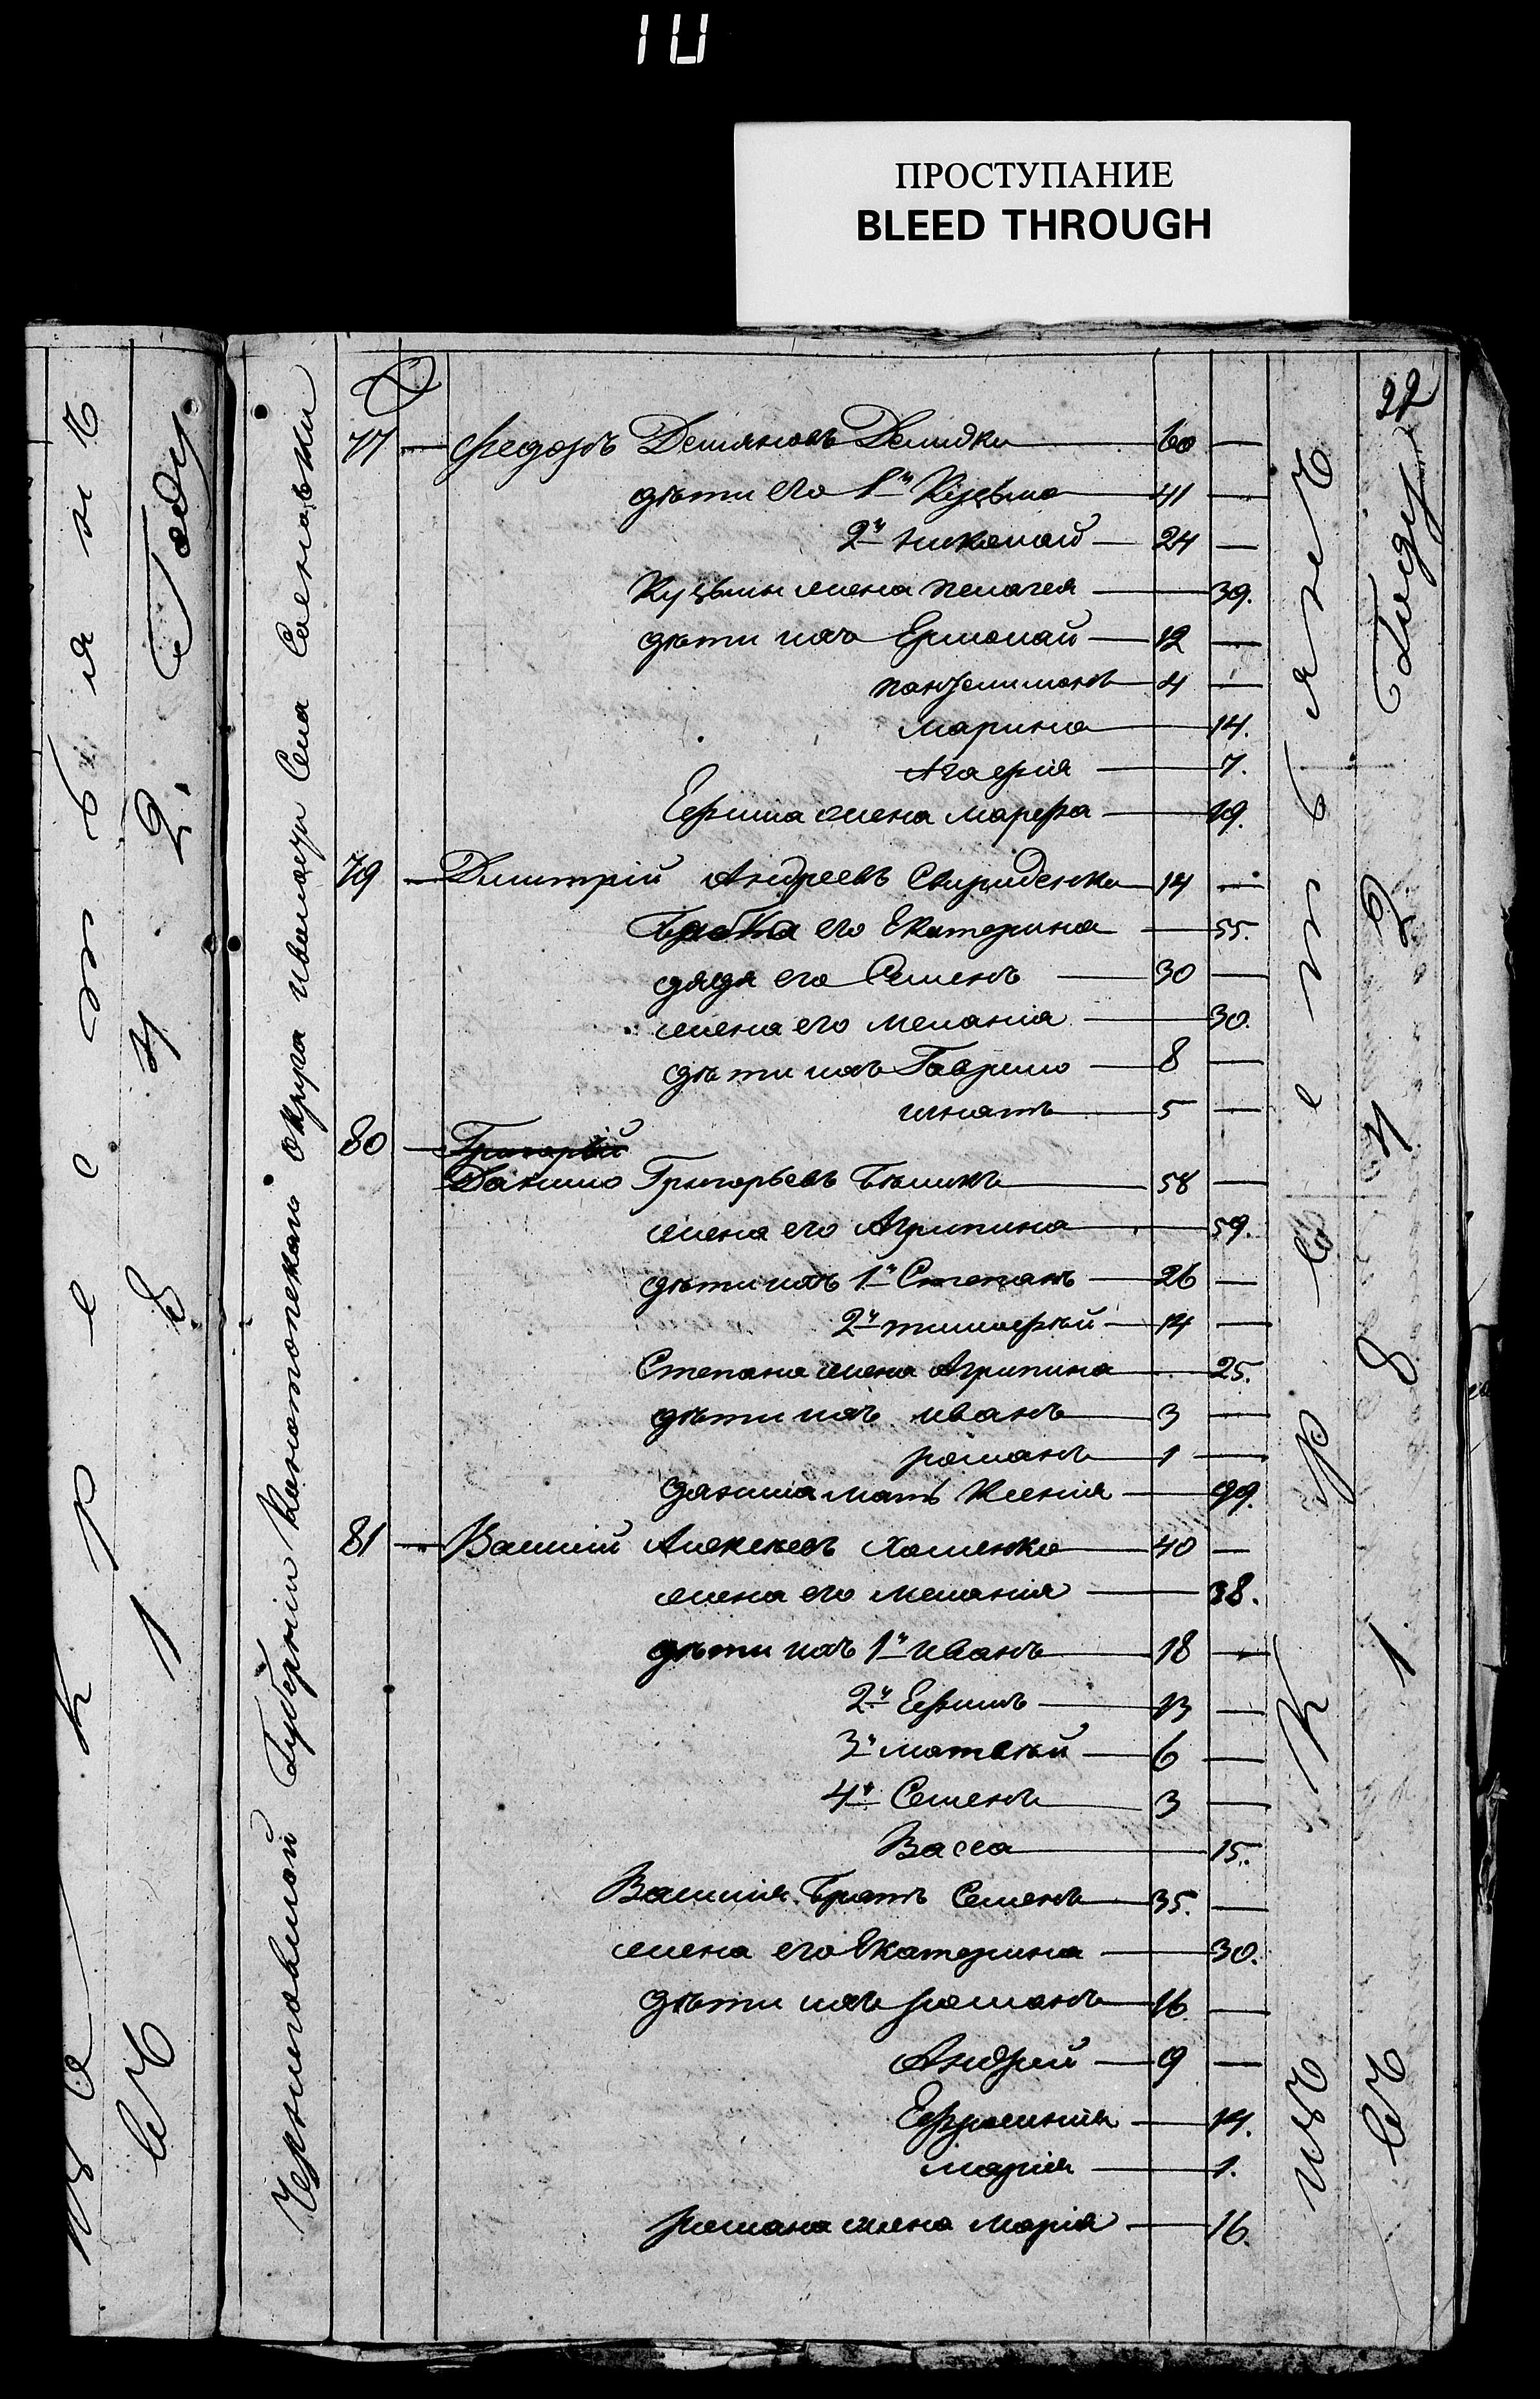 10
ПРОСТУПАНИЕ
BLEED THROUGH
22
Году
2
4
8
1
въ
изъ крестьянъ
въ 1842 Году
Черниговской Губерніи Конотопскаго округа волости Села
77 — Федоръ Демяновъ Демидко 60 —
дѣти его 1й Кузьма 41 —
2й Николай — 24 —
Кузьмы жена Пелагея — 39.
дѣти ихъ Ермолай — 12 —
Пантелимонъ 4 —
Марина — 14.
Агафія — 7.
Ефима жена Марфа — 19.
79 — Дмитрій Андреевъ Свириденко 14 —
его Екатерина — 55.
дядя его Семенъ — 30 —
жена его Меланія — 30.
дѣти ихъ Гаврило — 8 —
Игнатъ — 5 —
80 — Григорій
Данило Григорьевъ Бѣликъ 58 —
жена его Агрипина — 59.
дѣти ихъ 1й Степанъ — 26 —
2й Тимофѣй — 14 —
Степана жена Агрипина — 25.
дѣти ихъ Иванъ — 3 —
Романъ — 1 —
Данила мать Ксенія — 99.
81 — Василій Алексѣевъ Хоменко — 40 —
жена его Меланія — 38.
дѣти ихъ 1й Иванъ — 18 —
2й Ефимъ — 13 —
3й Матвѣй — 6 —
4й Семенъ — 3 —
Васса — 15.
Василія братъ Семенъ — 35. —
жена его Екатерина — 30.
дѣти ихъ Романъ — 16 —
Андрей — 9 —
Ефросинія — 14.
Марія — 1.
Романа жена Марія — 16.